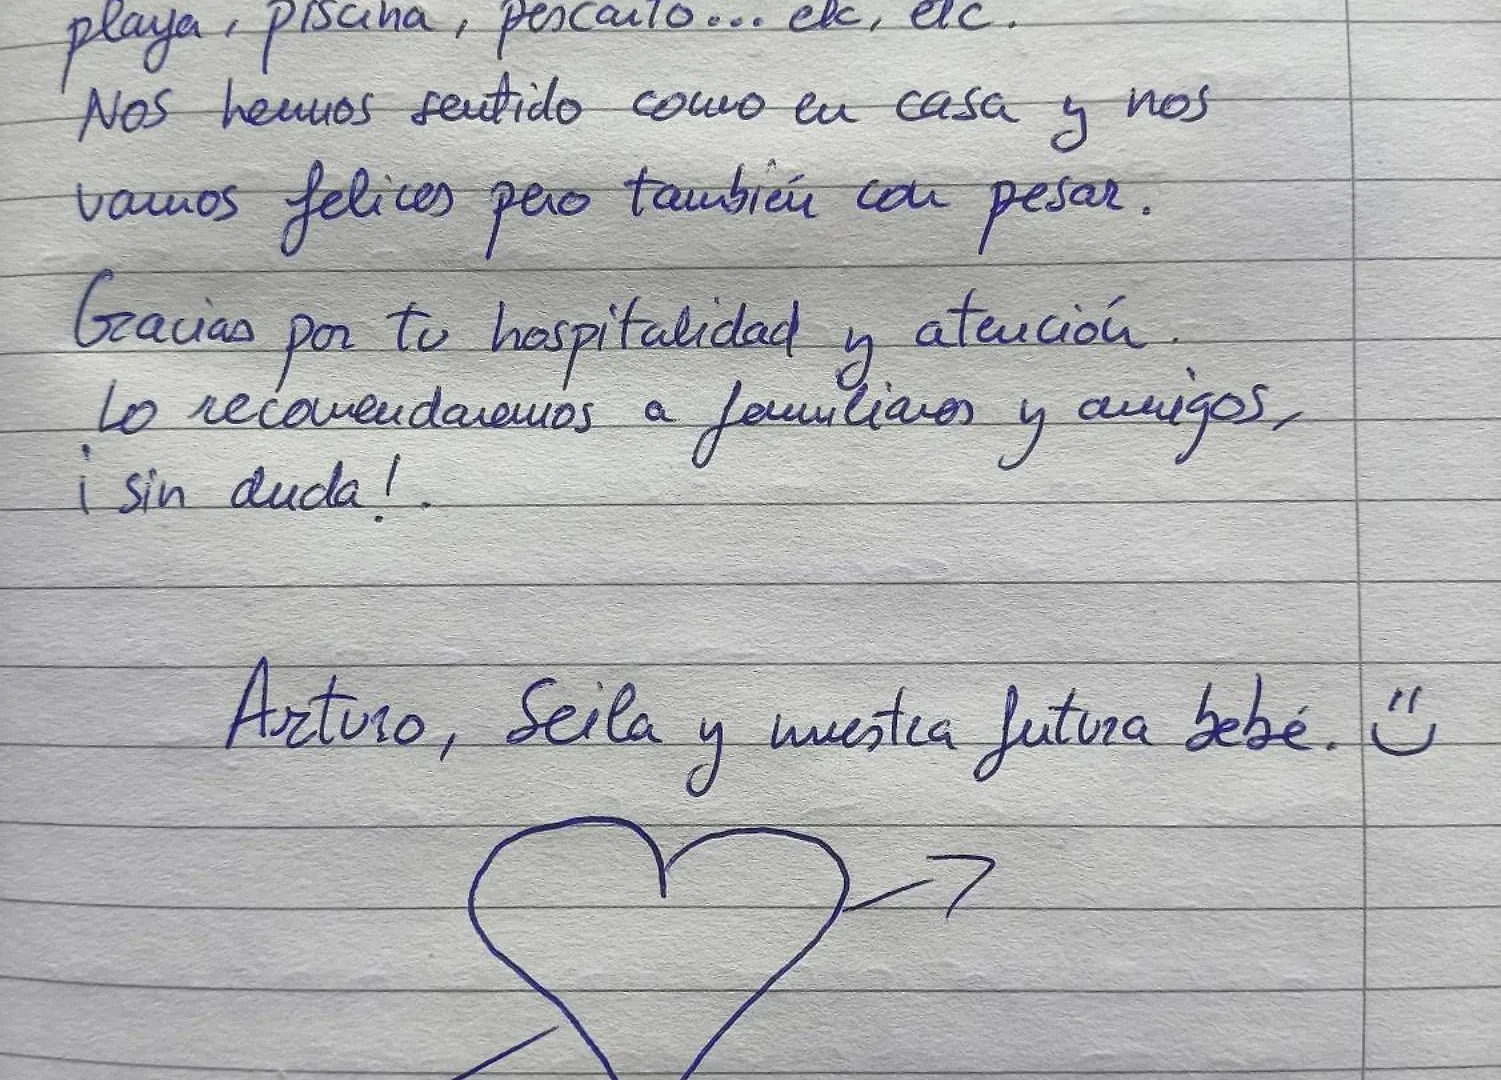 playa, piscina, pescaito... etc, etc.
Nos hemos sentido como en casa y nos
vamos felices pero también con pesar.
Gracias por tu hospitalidad y atención.
Lo recomendaremos a familiares y amigos,
¡sin duda!.
Arturo, Seila y nuestra futura bebé.